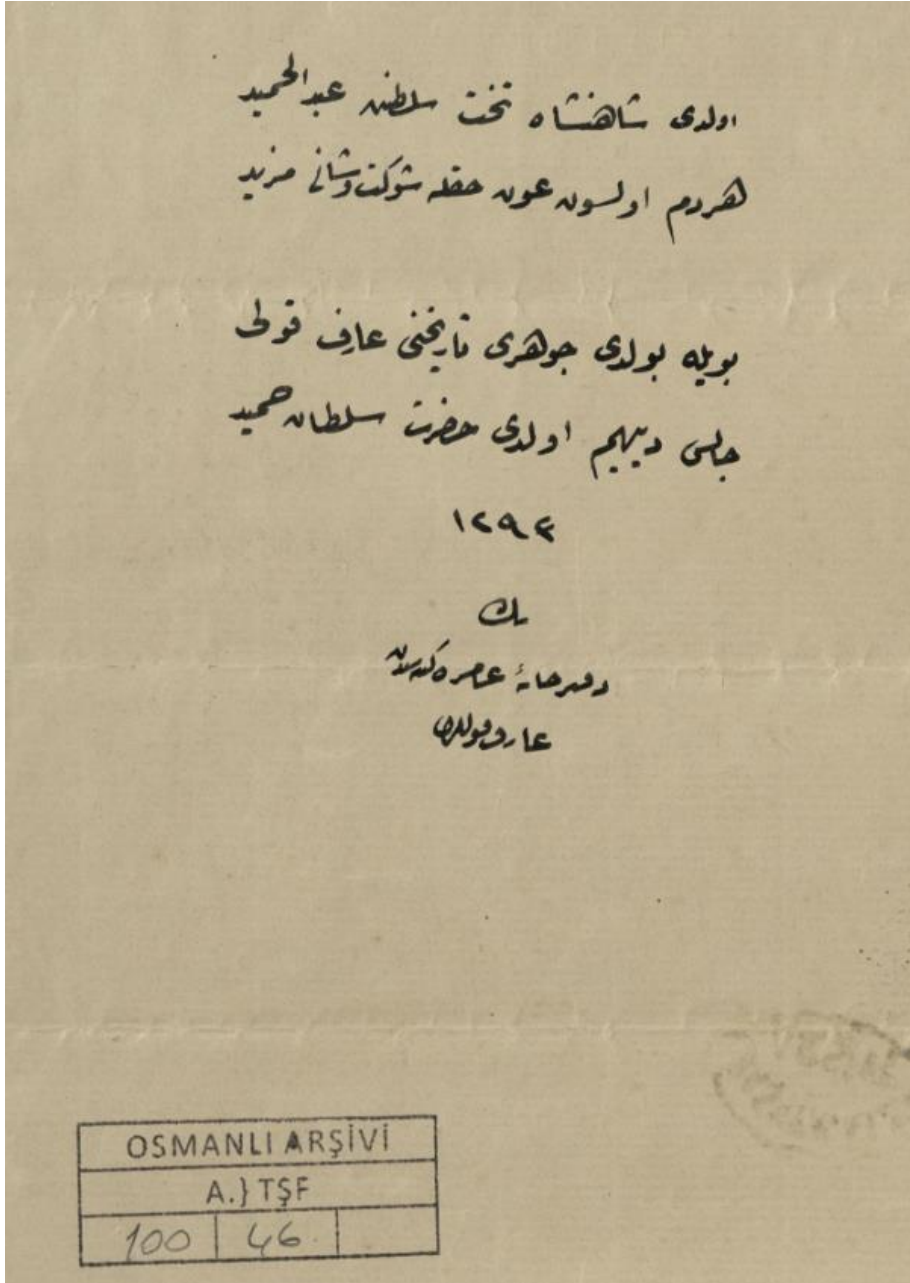 اولدی شاهنشاه تخت سلطنت عبدالحمید
هردم اولسون عون حقله شوکت وشانی مزید
بویله بولدی جوهری تاریخنی عارف قولی
جالس دیهیم اولدی حضرت سلطان حمید
١٢٩٣
بنده
دفترخانهٔ عامره کتبه‌سندن
عارف قوللری
OSMANLI ARŞİVİ
A.} TŞF
100 46